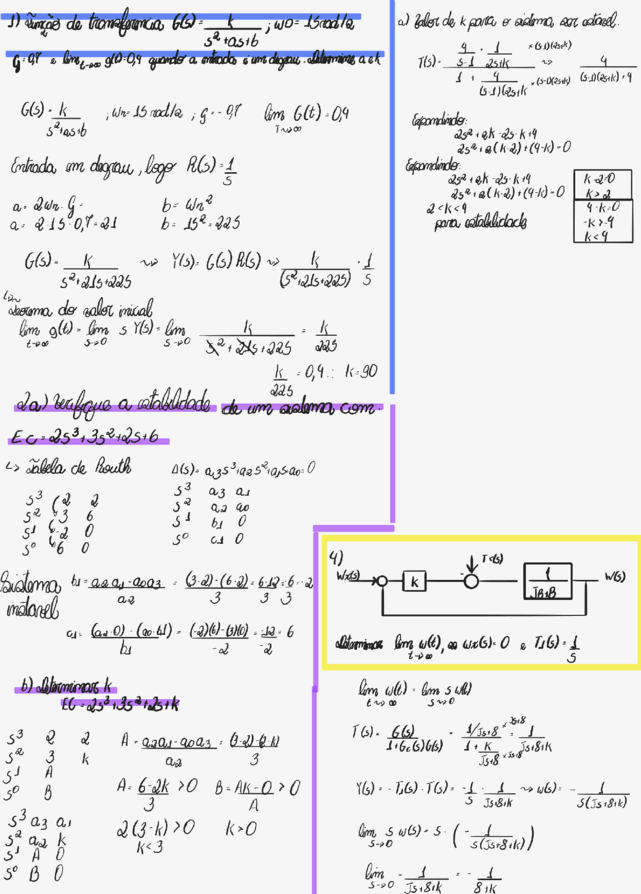 1) Função de transferencia G(s) = k / (s²+as+b) ; ωo = 15 rad/s
G = 0,7 e lim t→∞ g(t) = 0,4 quando a entrada é um degrau. Determine a e k
G(s) = k / (s²+as+b) ; ωn = 15 rad/s ; G = 0,7 lim t→∞ G(t) = 0,4
Entrada em degrau, logo R(s) = 1/s
a = 2ωn·G = b = ωn²
a = 2·15·0,7 = 21 b = 15² = 225
G(s) = k / (s²+21s+225) ~> Y(s) = G(s) R(s) ~> k / (s²+21s+225) · 1/s
Teorema do valor inicial
lim t→∞ g(t) = lim s→0 s Y(s) = lim s→0 k / (s²+21s+225) = k/225
k/225 = 0,4 ∴ k = 90
2a) Verifique a estabilidade de um sistema com
EC = 2s³+3s²+2s+6
↳ Tabela de Routh Δ(s) = a3s³+a2s²+a1s+a0 = 0
s³ 2 2 s³ a3 a1
s² 3 6 s² a2 a0
s¹ -2 0 s¹ b1 0
s⁰ 6 0 s⁰ c1 0
Sistema instavel
b1 = (a2a1-a0a3)/a2 = ((3·2)-(6·2))/3 = (6-12)/3 = -6/3 = -2
c1 = ((a2·0)-(a0·b1))/b1 = ((-2)(6)-(3)(0))/-2 = -12/-2 = 6
b) Determinar k
EC = 2s³+3s²+2s+k
s³ 2 2 A = (a2a1-a0a3)/a2 = ((3·2)-(2·k))/3
s² 3 k
s¹ A
s⁰ B A = (6-2k)/3 > 0 B = (Ak-0)/A > 0
s³ a3 a1
s² a2 k 2(3-k) > 0 k > 0
s¹ A 0 k < 3
s⁰ B 0
a) Valor de k para o sistema ser estavel.
T(s) = (4/(s-1) · 1/(2s+k)) / (1 + 4/((s-1)(2s+k))) ×(s-1)(2s+k) ×(s-1)(2s+k) ~> 4 / ((s-1)(2s+k)+4)
Expandindo:
2s²+2k-2s-k+4
2s²+2(k-2)+(4-k) = 0
Expandindo:
2s²+2k-2s-k+4
2s²+2(k-2)+(4-k) = 0
2 < k < 4
para estabilidade
k-2=0
k > 2
4-k=0
-k > -4
k < 4
4)
Tc(s)
Wx(s) k 1/(Js+8) W(s)
Determinar lim t→∞ w(t), se wx(s) = 0 e T1(s) = 1/s
lim t→∞ w(t) = lim s→0 s w(s)
T(s) = G(s)/(1+Gc(s)G(s)) = (1/Js+8)/(1+k/(Js+8)) ×Js+8 ×Js+8 = 1/(Js+8+k)
Y(s) = -T1(s)·T(s) = -1/s · 1/(Js+8+k) ~> w(s) = -1/(s(Js+8+k))
lim s→0 s w(s) = s·(-1/(s(Js+8+k)))
lim s→0 -1/(Js+8+k) = -1/(8+k)